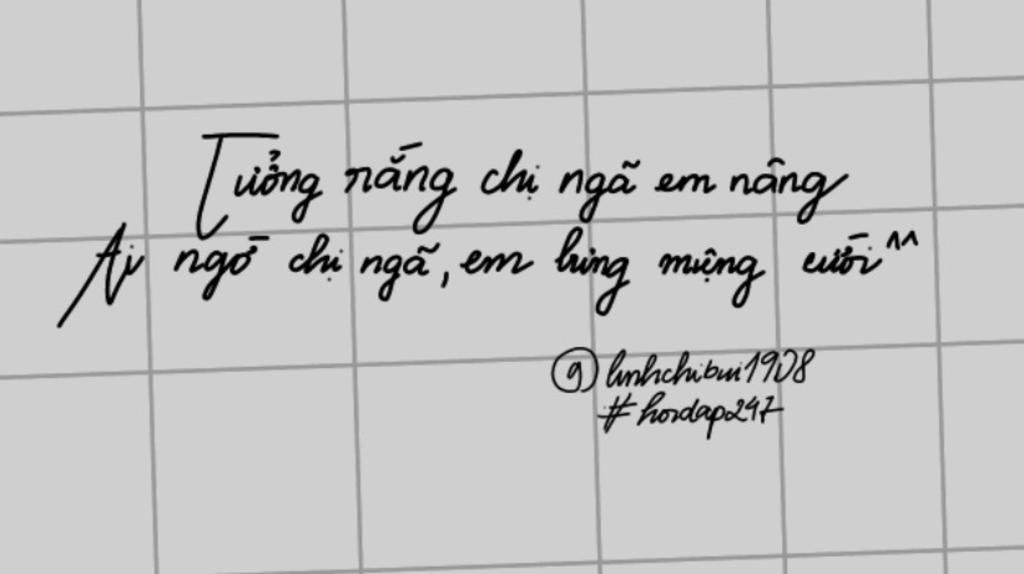 Tưởng rằng chị ngã em nâng
Ai ngờ chị ngã, em bưng miệng cười ^^
@linhchibui1908
#hoidap247